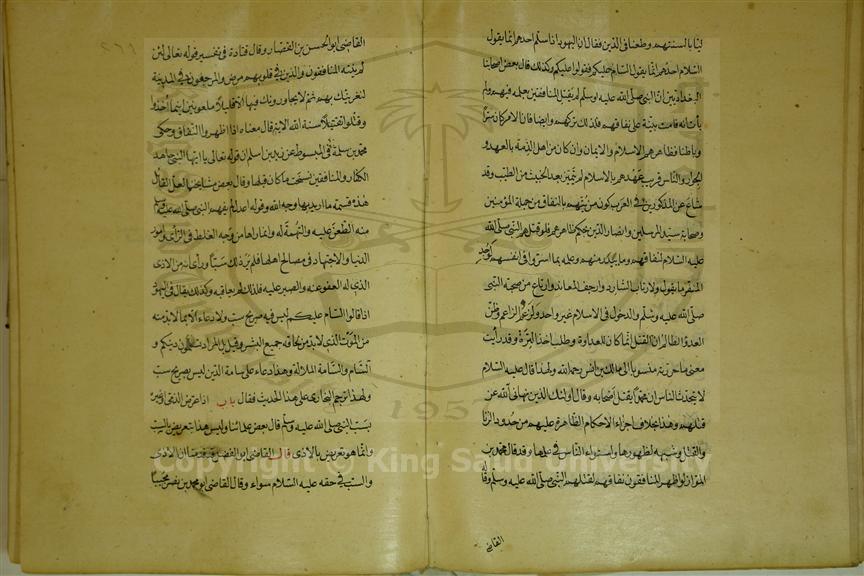 ليّا بالسنتهم وطعنا في الدين فقال ان اليهود اذا سلم احدهم انما يقول
السّلام احدهم انما يقول السّام عليكم فقولوا عليكم وكذلك قال بعض اصحابنا
البغداديين انّ النبي صلى الله عليه وسلم لم يقتل المنافقين بعلمه فيهم ولم
يأت انه قامت بينة على نفاقهم فلذلك تركهم وايضا فان الامر كان سرّا
وباطنا وظاهرهم الاسلام والايمان وان كان من اهل الذمة بالعهد و
الجوار والنّاس قريب عهدهم بالاسلام لم يتميّز بعد الخبيث من الطيّب وقد
شاع عن المذكورين في العرب كون من يتهم بالنفاق من جملة المؤمنين
وصحابة سيد المرسلين وانصار الدين بحكم ظاهرهم فلو قتلهم النبي صلى الله
عليه السلام لنفاقهم وما يبدر منهم وعلمه بما اسروا في انفسهم لوجد
المنفر ما يقول ولارتاب الشارد وارجف المعاند وارتاع من صحبة النبي
صلى الله عليه وسلم والدخول في الاسلام غير واحد ولزعم الزاعم وظنّ
العدوّ الظالم ان القتل انما كان للعداوة وطلب اخذ الترة وقد رأيت
معنى ما حررته منسوبا الى مالك بن انس رحمه الله ولهذا قال عليه السلام
لا يتحدّث الناس ان محمّدا يقتل اصحابه وقال اولئك الذين نهاني الله عن
قتلهم وهذا بخلاف اجراء الاحكام الظاهرة عليهم من حدود الزنا
والقتل وشبهه لظهورها واستواء النّاس في علمها وقد قال محمد بن
المواز لو اظهر المنافقون نفاقهم لقتلهم النبي صلى الله عليه وسلم وقا
القاضي
القاضي ابو الحسن بن القصّار وقال قتادة في تفسير قوله تعالى لئن
لم ينته المنافقون والذين في قلوبهم مرض والمرجفون في المدينة
لنغرينّك بهم ثم لا يجاورونك فيها الا قليلا ملعونين اينما ثقفوا اخذوا
وقتّلوا تقتيلا سنة الله الاية قال معناه اذا اظهروا النفاق وحكى
محمد بن مسلمة في المبسوط عن زيد بن اسلم ان قوله تعالى يا ايها النبي جاهد
الكفّار والمنافقين نسختها ما كان قبلها وقال بعض مشايخنا لعل القائل
هذه قسمة ما اريد بها وجه الله وقوله اعدل لم يفهم النبي صلى الله عليه وسلم
منه الطعن عليه والتهمة له وانما راها من وجه الغلط في الرأي وامور
الدنيا والاجتهاد في مصالح اهلها فلم ير ذلك سبّا ورأى انه من الاذى
الذي له العفو عنه والصبر عليه فلذلك لم يعاقبه وكذلك يقال في اليهود
اذا قالوا السّام عليكم ليس فيه صريح سبّ ولا دعاء الا بما لابدّ منه
من الموت الذي لابدّ من لحاقه جميع البشر وقيل بل المراد تسأمون دينكم و
السّام والسّامة الملالة وهذا دعاء على سامة الدّين ليس بصريح سبّ
ولهذا ترجم البخاري على هذا الحديث فقال باب اذا عرّض الذمّي او غيره
بسبّ النبي صلى الله عليه وسلم قال بعض علمائنا وليس هذا بتعريض بالسبّ
وانما هو تعريض بالاذى قال القاضي ابو الفضل قد قدمنا ان الاذى
والسبّ في حقه عليه السّلام سواء وقال القاضي ابو محمد بن نصر مجيبا
Copyright © King Saud University
1957